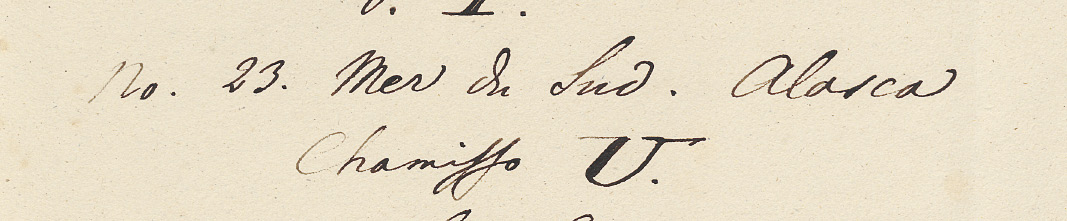 No. 23. Mer du Sud. Alasca
Chamisso U.